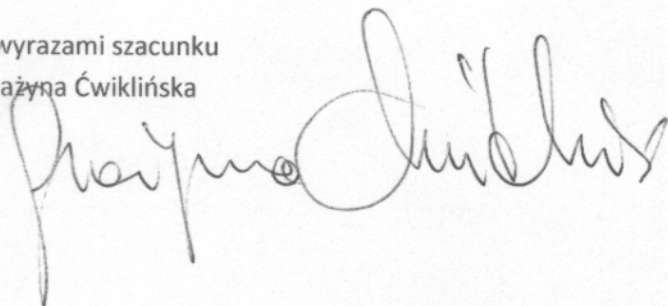 wyrazami szacunku
ażyna Ćwiklińska
Grażyna Ćwiklińska